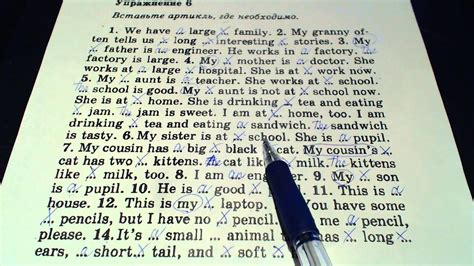 Упражнение 6
Вставьте артикль, где необходимо.
1. We have a large x family. 2. My granny of-
ten tells us x long x interesting x stories. 3. My
x father is an engineer. He works in a factory. The
factory is large. 4. My x mother is a doctor. She
works at a large x hospital. She is at x work now.
5. My x aunt is a teacher. She works at x school.
The school is good. My x aunt is not at x school now.
She is at x home. She is drinking x tea and eating
x jam. The jam is sweet. I am at x home, too. I am
drinking x tea and eating a sandwich. The sandwich
is tasty. 6. My sister is at x school. She is a pupil.
7. My cousin has a big x black x cat. My cousin's x
cat has two x kittens. The cat like x milk. The kittens
like x milk, too. 8. I am an engineer. 9. My x son
is a pupil. 10. He is a good x pupil. 11. This is a
house. 12. This is my x laptop. You have some
x pencils, but I have no x pencil. me a pencil,
please. 14. It's a small ... animal has x long x
ears, a short x tail, and x soft